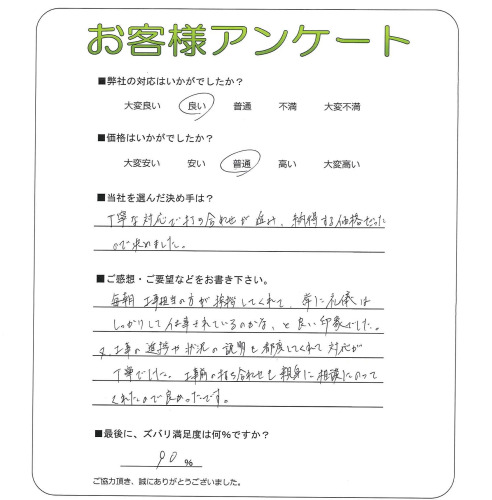 お客様アンケート
■弊社の対応はいかがでしたか？
大変良い 良い 普通 不満 大変不満
■価格はいかがでしたか？
大変安い 安い 普通 高い 大変高い
■当社を選んだ決め手は？
丁寧な対応で打ち合わせが進み、納得する価格だった
ので決めました。
■ご感想・ご要望などをお書き下さい。
毎朝 工事担当の方が挨拶してくれて、常に礼儀は
しっかりして仕事されているのかな、と良い印象でした。
又、工事の進捗や状況の説明も都度してくれて対応が
丁寧でした。工事前の打ち合わせも親身に相談にのって
くれたので良かったです。
■最後に、ズバリ満足度は何％ですか？
90 ％
ご協力頂き、誠にありがとうございました。